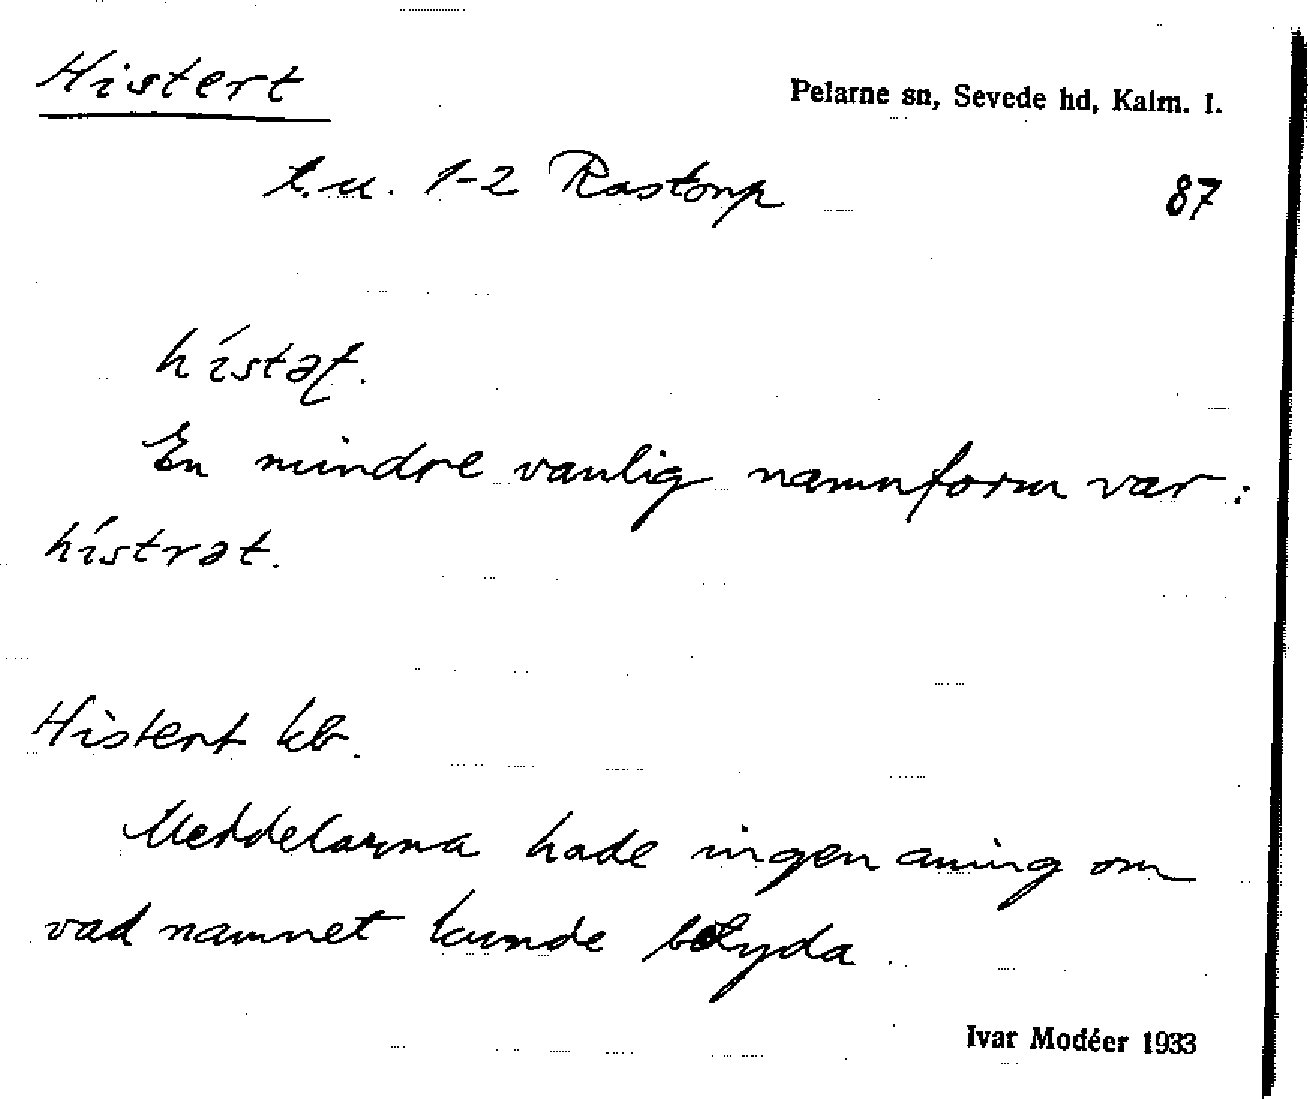 Histert
Pelarne sn, Sevede hd, Kalm. l.
l.u. 1-2 Rastorp
87
hístəʈ.
En mindre vanlig namnform var:
hístrət.
Histert kb.
Meddelarna hade ingen aning om
vad namnet kunde betyda.
Ivar Modéer 1933